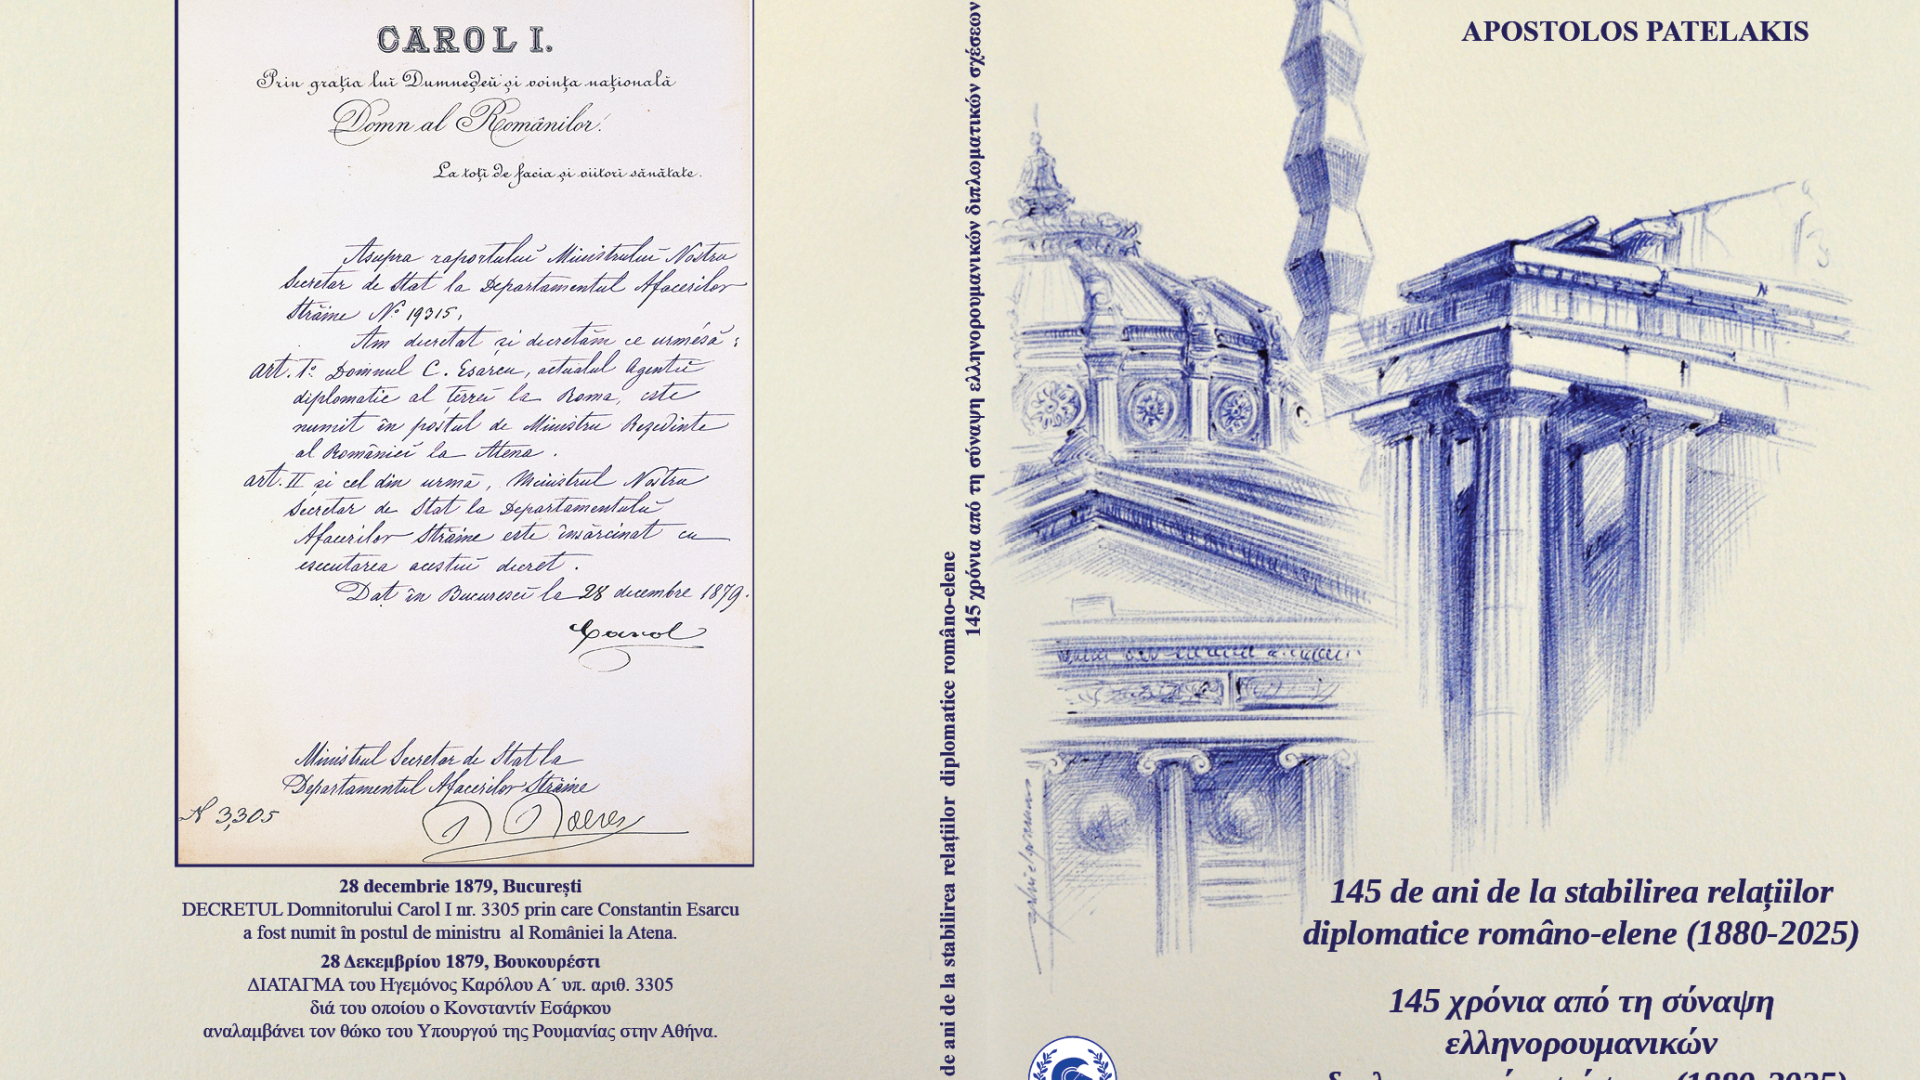 CAROL I.
Prin grația luĭ Dumneḑeŭ și voința națională
Domn al Românilor.
La toți de facia și viitori sănătate.
Asupra raportuluĭ Ministruluĭ Nostru
Secretar de Stat la Departamentul Afacerilor
Străine Nº 19315,
Am decretat și decretăm ce urmésă:
art. 1º Domnul C. Esarcu, actualul Agentŭ
diplomatic al țerreĭ la Roma, este
numit în postul de Ministru Rezidinte
al Românieĭ la Atena.
art. II și cel din urmă, Ministrul Nostru
Secretar de Stat la Departamentulŭ
Afacerilor Străine este însărcinat cu
esecutarea acestuĭ decret.
Dat în Bucurescĭ la 28 decembre 1879.
Carol
Ministrul Secretar de Stat la
Departamentul Afacerilor Străine
N 3,305
28 decembrie 1879, București
DECRETUL Domnitorului Carol I nr. 3305 prin care Constantin Esarcu
a fost numit în postul de ministru al României la Atena.
28 Δεκεμβρίου 1879, Βουκουρέστι
ΔΙΑΤΑΓΜΑ του Ηγεμόνος Καρόλου Α΄ υπ. αριθ. 3305
διά του οποίου ο Κονσταντίν Εσάρκου
αναλαμβάνει τον θώκο του Υπουργού της Ρουμανίας στην Αθήνα.
de ani de la stabilirea relațiilor diplomatice româno-elene
145 χρόνια από τη σύναψη ελληνορουμανικών διπλωματικών σχέσεων
APOSTOLOS PATELAKIS
145 de ani de la stabilirea relațiilor
diplomatice româno-elene (1880-2025)
145 χρόνια από τη σύναψη
ελληνορουμανικών
(1880-2025)